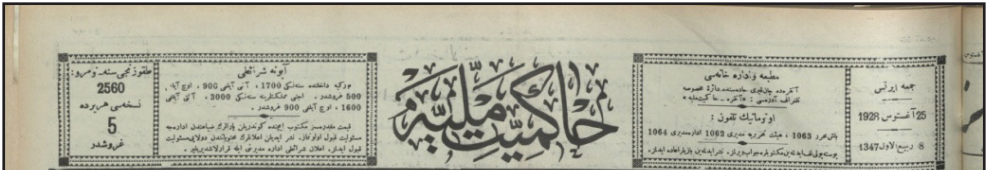 جمعه ایرتسی
25 آغستوس 1928
8 ربیع الاول 1347
مطبعه و اداره خانه‌سی
آنقره‌ده چانقیری جاده‌سنده دائرهٔ مخصوصه
تلغراف آدره‌سی : «آنقره ـ حاکمیت ملیه»
اوتوماتیك تلفون :
باش محرر 1063 ، هیئت تحریریه مدیری 1062 اداره مدیری 1064
حاكمیت ملیه
آبونه شرائطی
تورکیه داخلنده سنه‌لکی 1700 ، آلتی آیلغی 900 ، اوچ آیلغی
500 غروشدر . اجنبی مملکتلرینه سنه‌لکی 3000 ، آلتی آیلغی
1600 ، اوچ آیلغی 900 غروشدر .
طقوزنجی سنه ـ نومرو :
2560
نسخه‌سی هر یرده
5
غروشدر